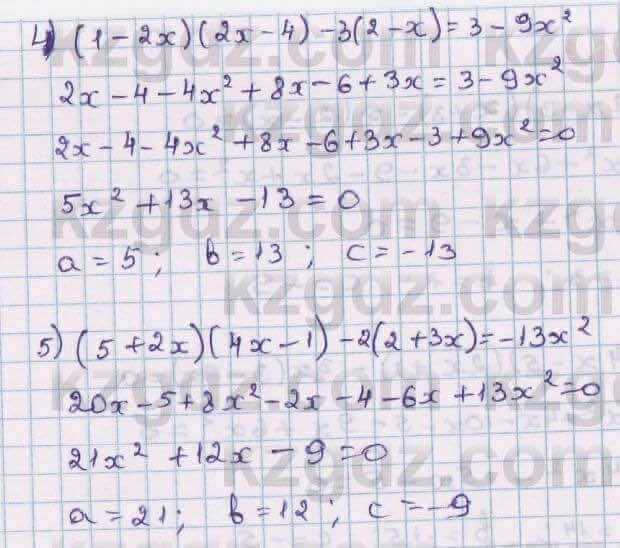 4) (1-2x)(2x-4)-3(2-x)=3-9x²
2x-4-4x²+8x-6+3x=3-9x²
2x-4-4x²+8x-6+3x-3+9x²=0
5x²+13x-13=0
a=5; b=13; c=-13
5) (5+2x)(4x-1)-2(2+3x)=-13x²
20x-5+8x²-2x-4-6x+13x²=0
21x²+12x-9=0
a=21; b=12; c=-9